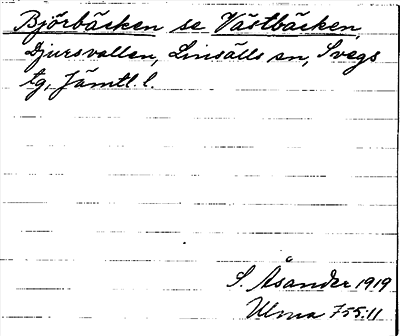 Björbäcken se Västbäcken,
Djursvallen, Linsälls sn, Svegs
tg, Jämtl. l.
S. Åsander 1919
Ulma 755:11